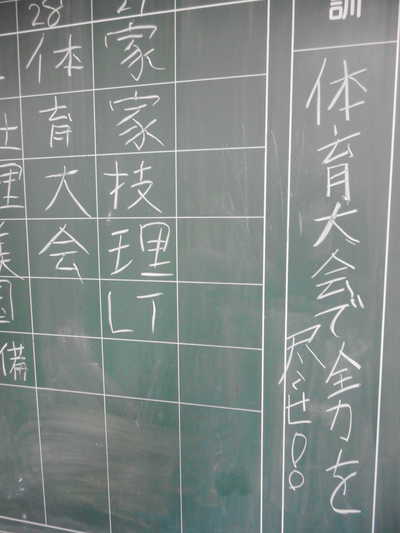 訓
体育大会で全力を
尽させ!!
27
家
家
技
理
LT
28
体
育
大
会
社
理
美
国
備